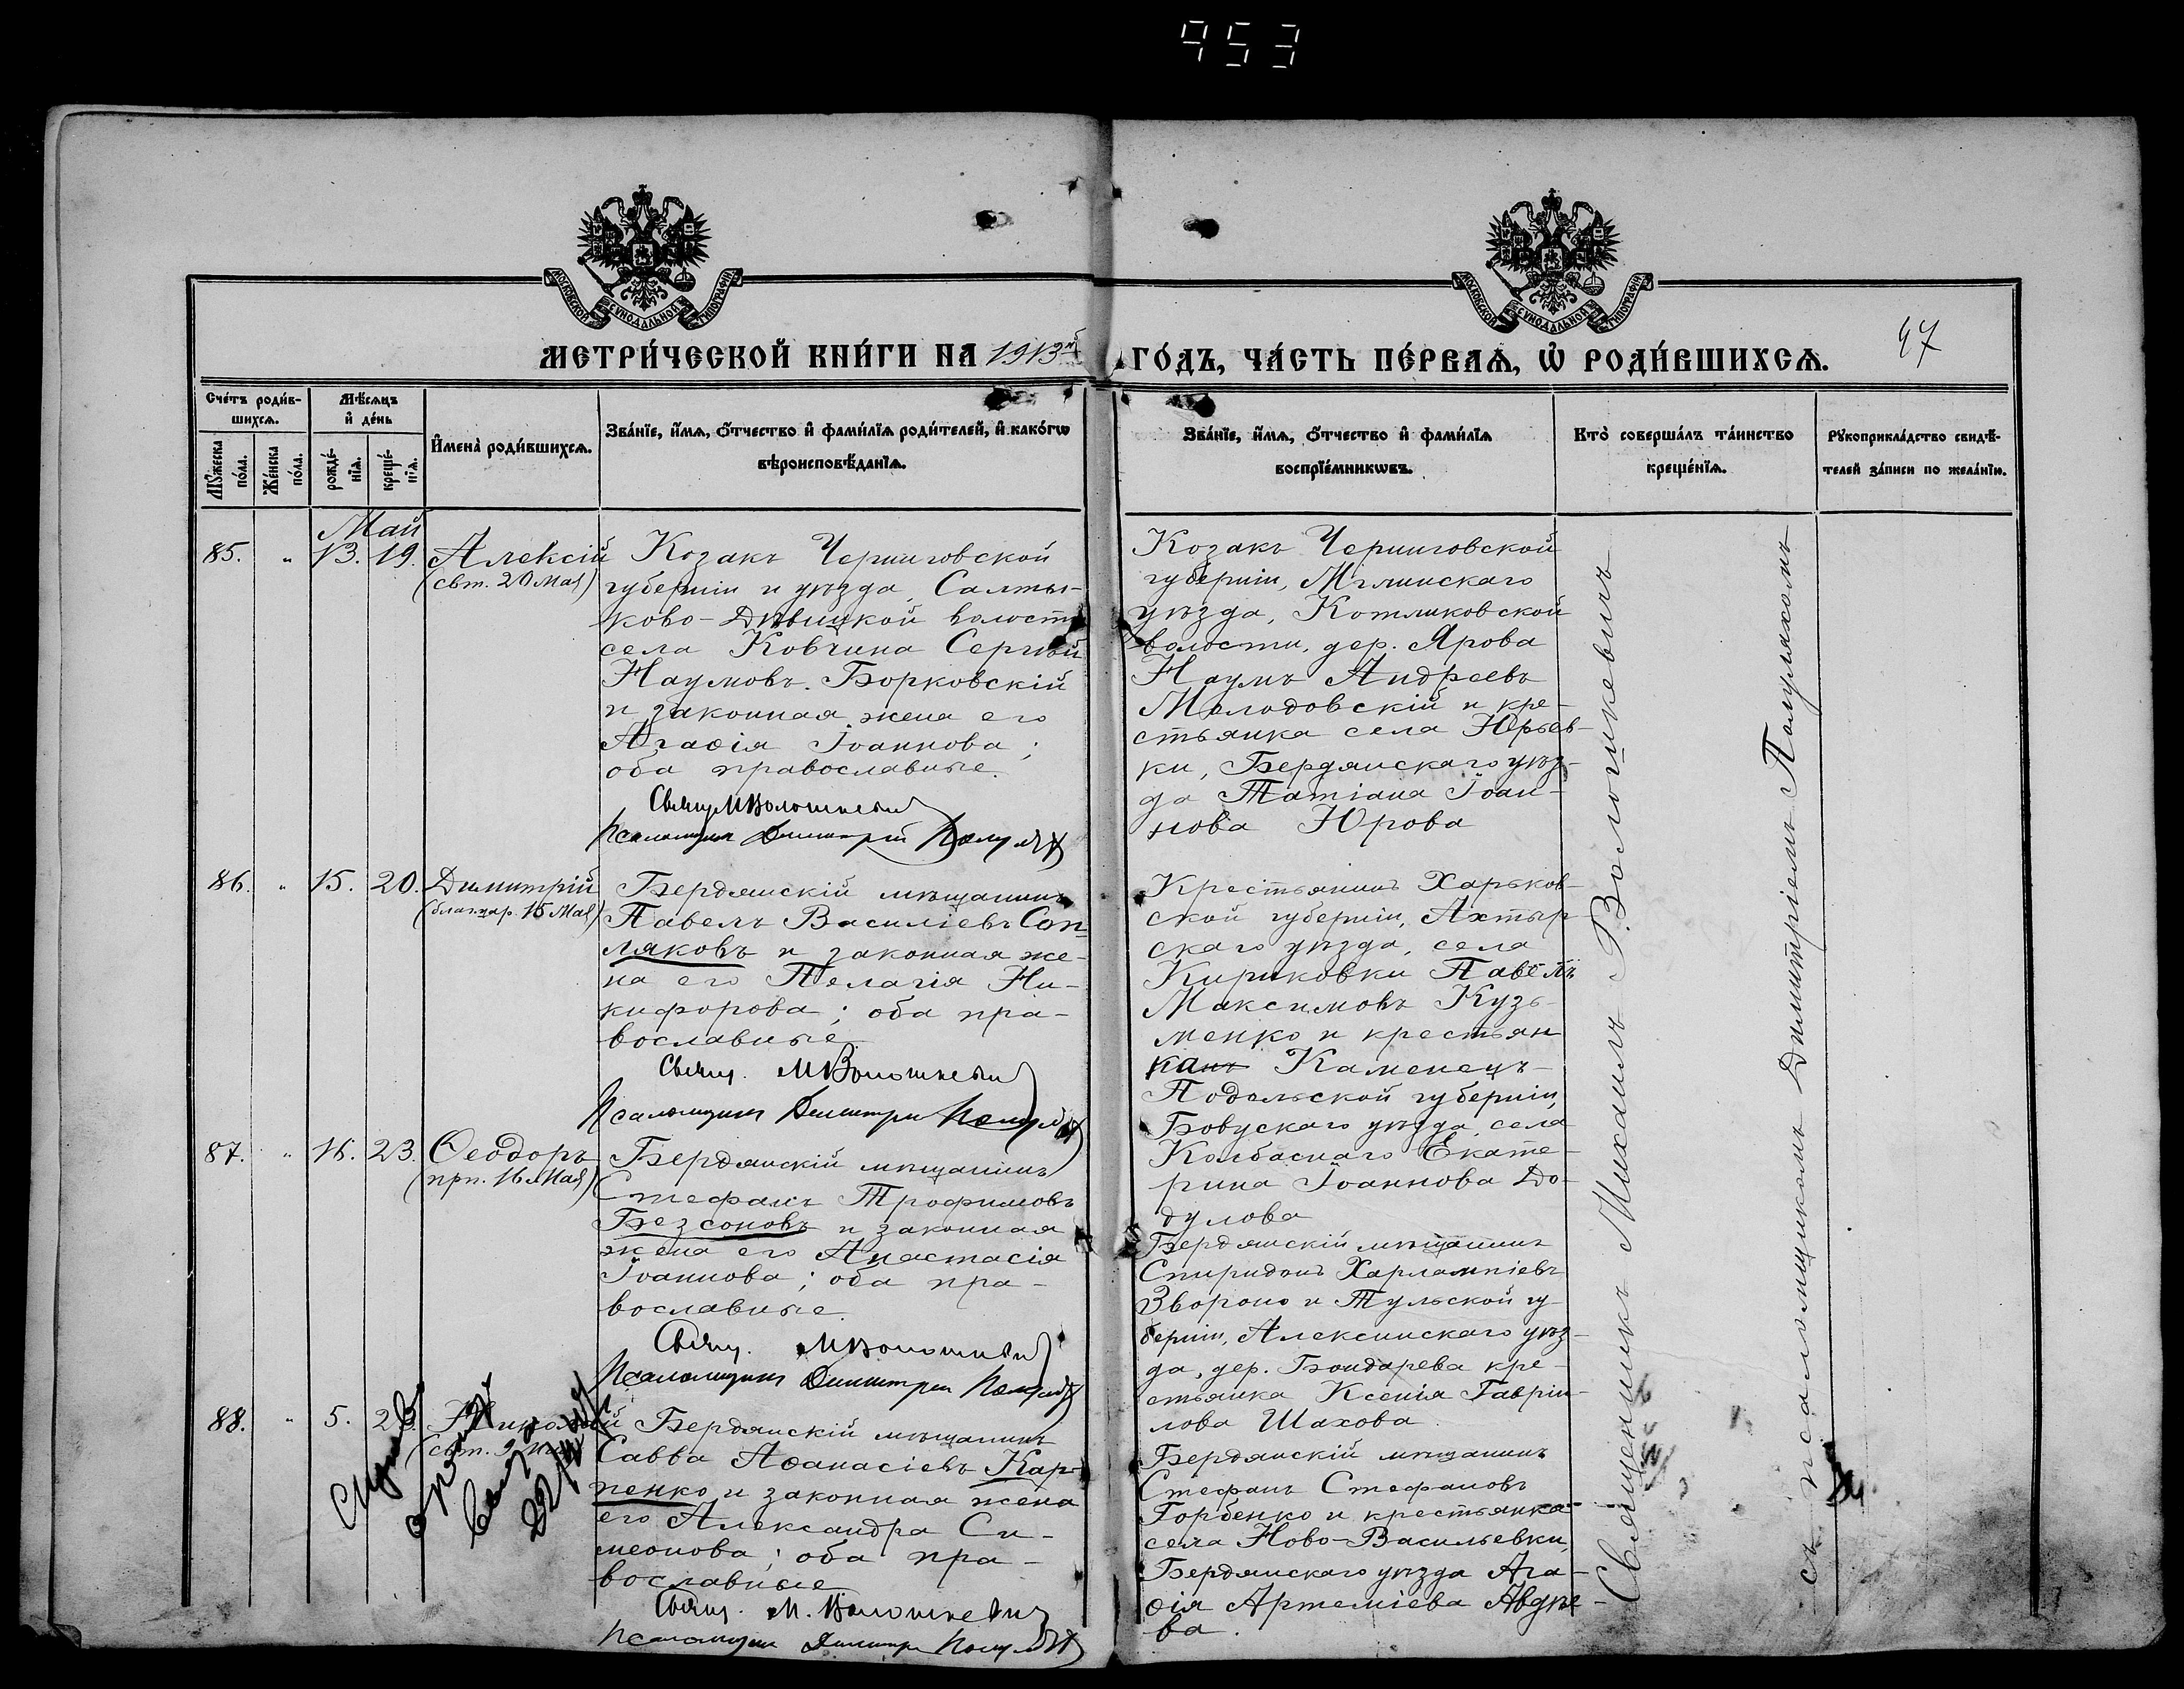 953
МОСКОВСКОЙ СѴНОДАЛЬНОЙ ТИПОГРАФІИ
МОСКОВСКОЙ СѴНОДАЛЬНОЙ ТИПОГРАФІИ
47
МЕТРИ́ЧЕСКОЙ КНИ́ГИ НА 1913й ГО́ДЪ, ЧА́СТЬ ПЕ́РВАѦ, Ѡ҆ РОДИ́ВШИХСѦ.
Сче́тъ роди́в-
шихсѧ.
Мꙋ́жеска по́ла.
Же́нска по́ла.
Мѣ́сѧцъ
и҆ де́нь
рожде́-нїѧ.
креще́-нїѧ.
И҆мена̀ роди́вшихсѧ.
Зва́нїе, и҆́мѧ, ѻ҆́тчество и҆ фами́лїѧ роди́телей, и҆ како́гѡ
вѣроисповѣ́данїѧ.
Зва́нїе, и҆́мѧ, ѻ҆́тчество и҆ фами́лїѧ
воспрїе́мникѡвъ.
Кто̀ соверша́лъ та́инство
креще́нїѧ.
Рꙋкоприкла́дство свидѣ́-
телей за́писи по жела́нїю.
Май
85. " 13. 19. Алексій
(свт. 20 Мая)
Козакъ Черниговской
губерніи и уѣзда, Салты-
ково-Дѣвицкой волости
села Ковчина Сергѣй
Наумовъ Борковскій
и законная жена его
Агаѳія Іоаннова;
оба православные.
Свящ. М Волошкевич
Псаломщик Димитрий
Козакъ Черниговской
губерніи, Мглинскаго
уѣзда, Котляковской
волости, дер. Ярова
Наумъ Андреевъ
Молодовскій и кре-
стьянка села Юрьев-
ки, Бердянскаго уѣз-
да Татіана Іоан-
нова Юрова
86. " 15. 20. Димитрій
(благ. цар. 15 Мая)
Бердянскій мѣщанинъ
Павелъ Василіевъ Соп-
ляковъ и законная же-
на его Пелагія Ни-
кифорова; оба пра-
вославные
Свящ. М Волошкевич
Псаломщик Димитри
Крестьянинъ Харьков-
ской губерніи, Ахтыр-
скаго уѣзда, села
Кириковки Павелъ
Максимовъ Кузь-
менко и крестьян
ка Каменецъ-
Подольской губерніи,
уѣзда, села
Колбаснаго Екате-
рина Іоаннова До-
дулова
87. " 16. 23. Ѳеодоръ
(прп. 16 Мая)
Бердянскій мѣщанинъ
Стефанъ Трофимовъ
Безсоновъ и законная
жена его Анастасія
Іоаннова; оба пра-
вославные.
Свящ. М Волошкевич
Псаломщик Димитри
Бердянскій мѣщанинъ
Спиридонъ Харлампіевъ
Звороно и Тульской гу-
берніи, Алексинскаго уѣз-
да, дер. Бондарева кре-
стьянка Ксенія Гаврии-
лова Шахова.
88. " 5. 23. Николай
(свт. 9 Мая)
Бердянскій мѣщанинъ
Савва Аѳанасіевъ Кар-
пенко и законная жена
его Александра Си-
меонова; оба пра-
вославные
Свящ. М. Волошкевич
Псаломщик Димитри
Бердянскій мѣщанинъ
Стефанъ Стефановъ
Горбенко и крестьянка
села Ново-Васильевки,
Бердянскаго уѣзда Ага-
ѳія Артеміева Авдѣе-
ва.
Священникъ Михаилъ Г. Волошкевичъ
съ псаломщикомъ Димитріемъ Полуляхомъ